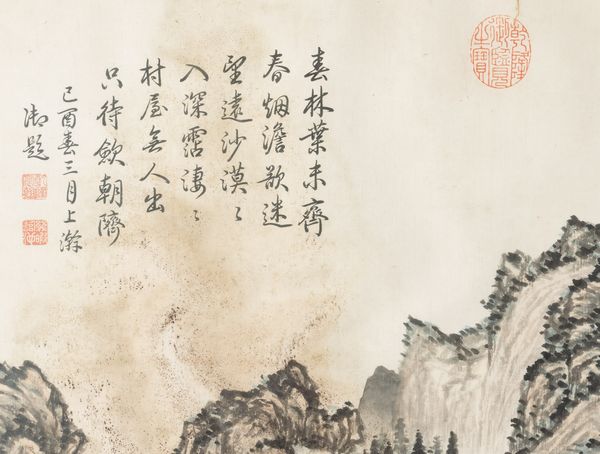 乾隆
御覽
之寶
春林葉未齊
春烟澹欲迷
望遠沙漠〻
入深霑淒〻
村屋無人出
只待歛朝隮
己酉春三月上澣
御題